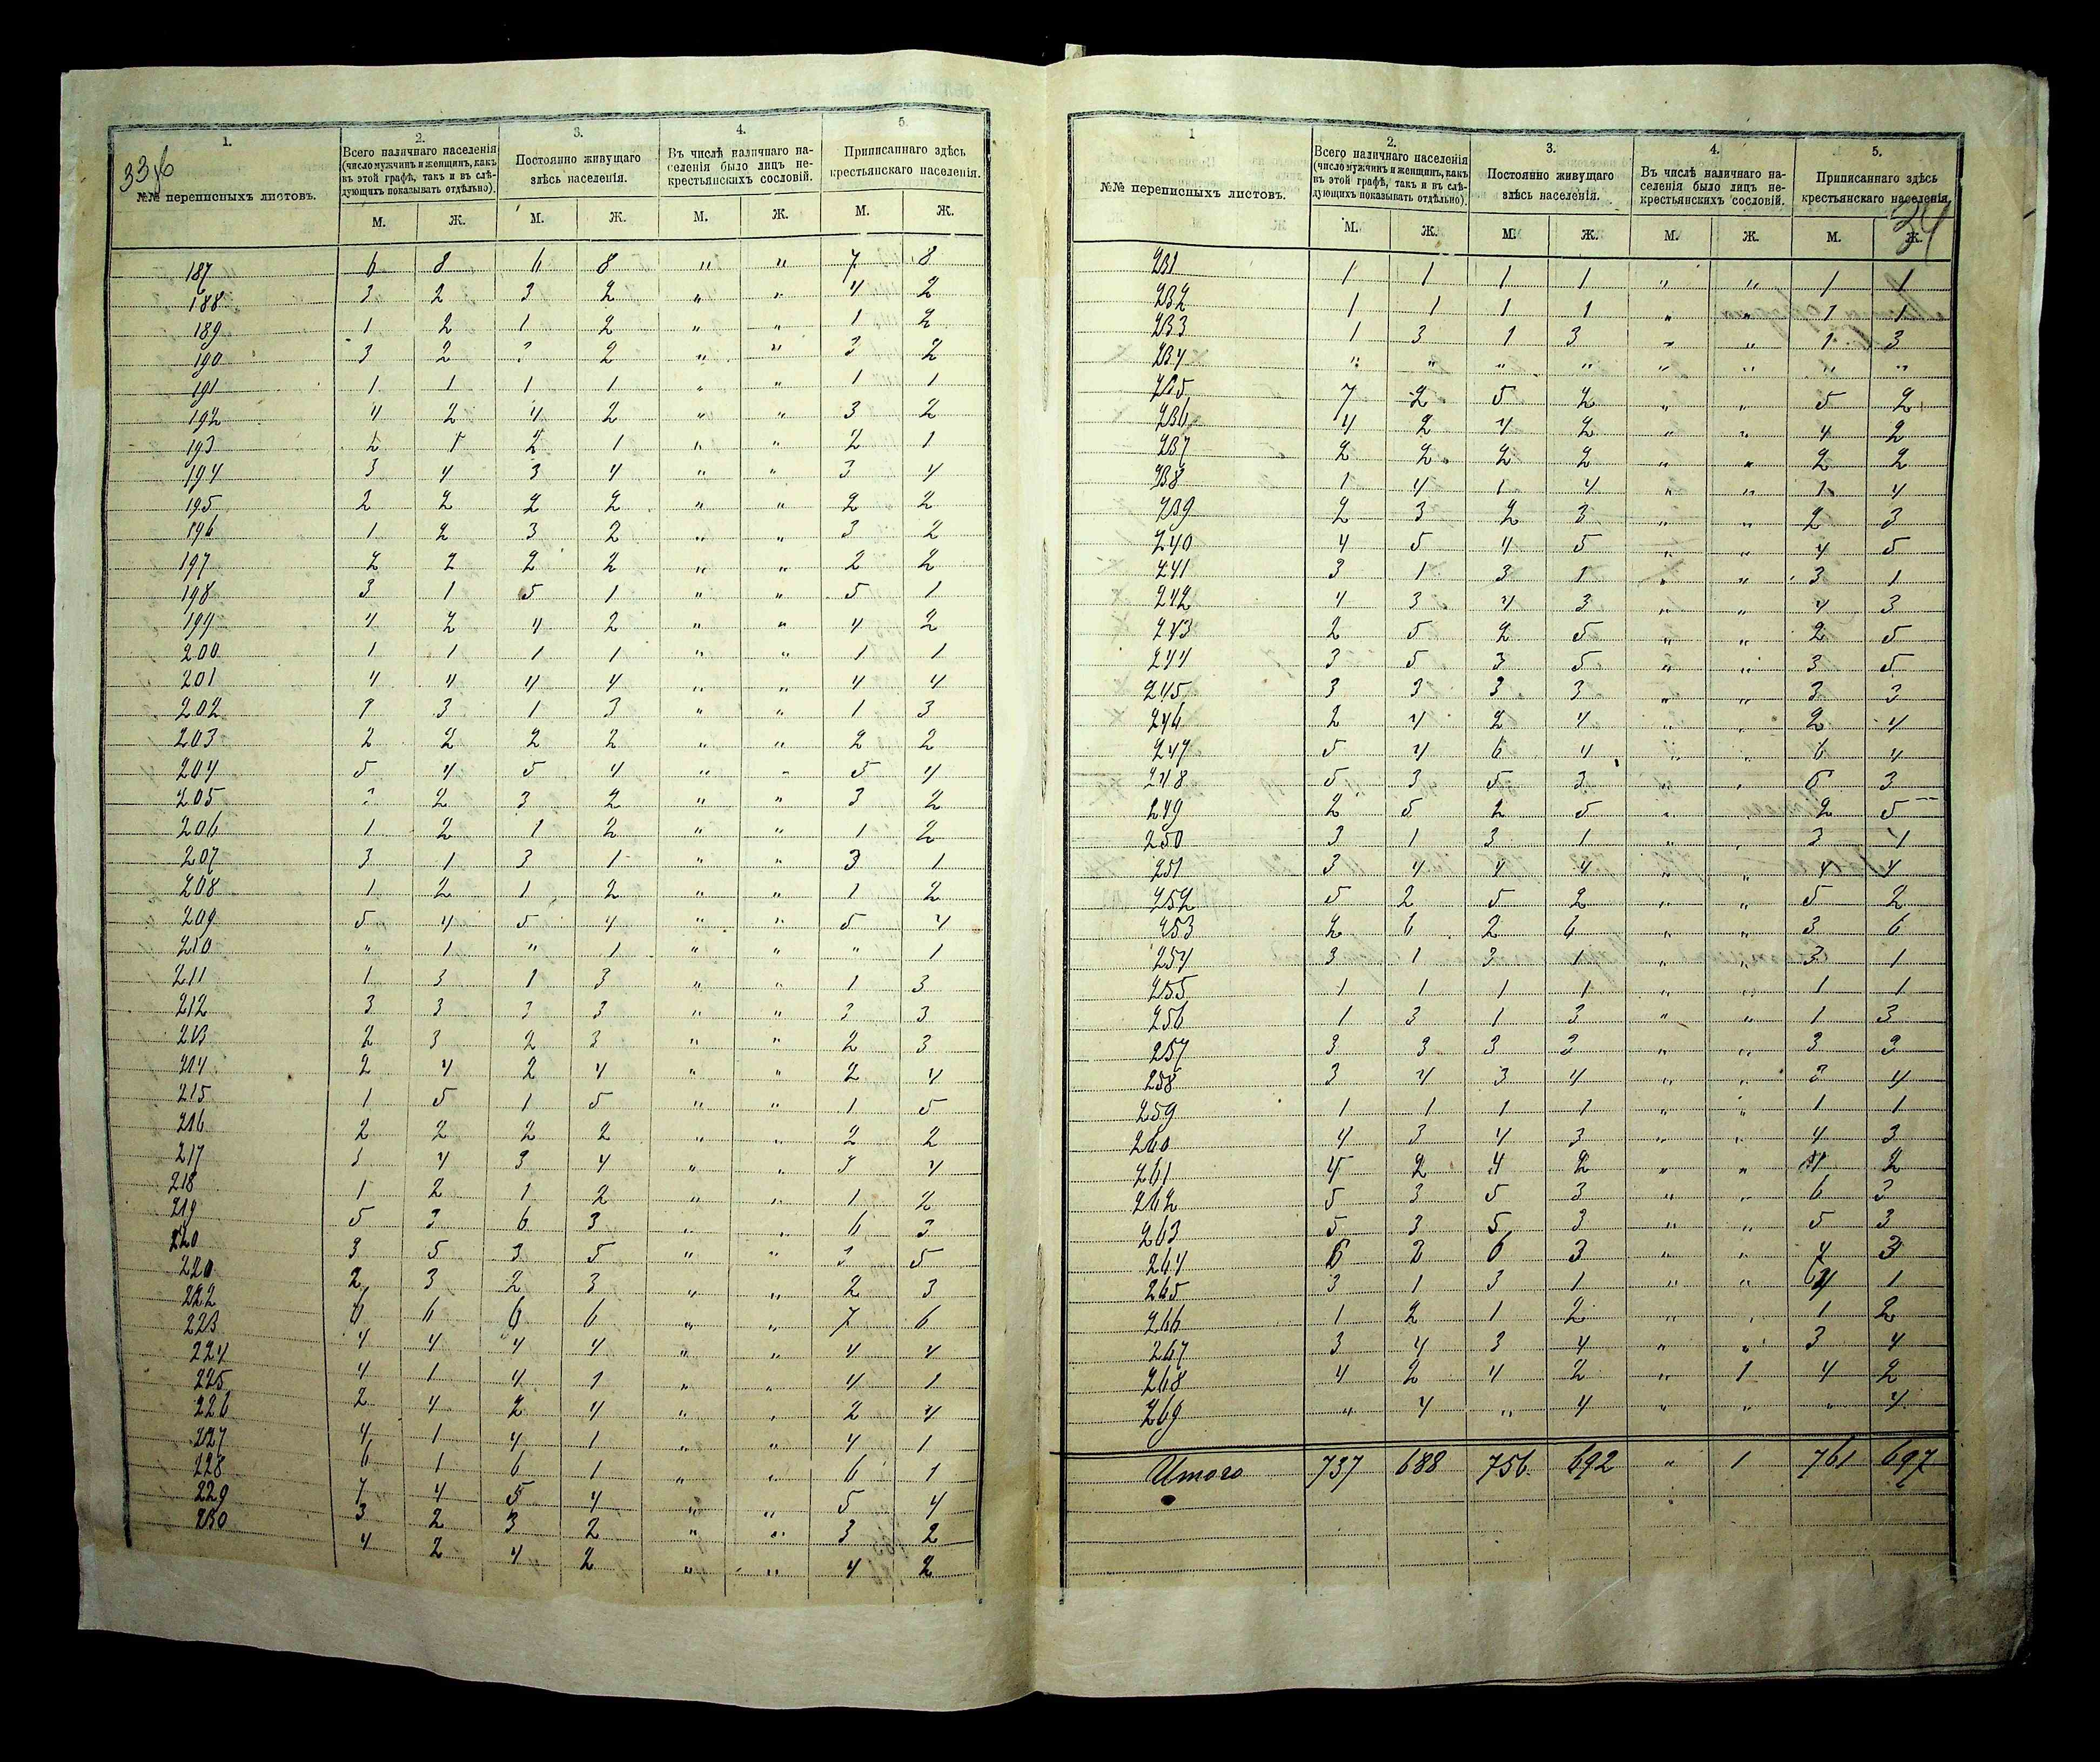 33об
1. 2. 3. 4. 5.
№№ переписныхъ листовъ.
Всего наличнаго населенія (число мужчинъ и женщинъ, какъ въ этой графѣ, такъ и въ слѣдующихъ показывать отдѣльно).
Постоянно живущаго здѣсь населенія.
Въ числѣ наличнаго населенія было лицъ некрестьянскихъ сословій.
Приписаннаго здѣсь крестьянскаго населенія.
М. Ж. М. Ж. М. Ж. М. Ж.
187 6 8 6 8 " " 7 8
188 3 2 3 2 " " 4 2
189 1 2 1 2 " " 1 2
190 3 2 3 2 " " 3 2
191 1 1 1 1 " " 1 1
192 4 2 4 2 " " 3 2
193 2 1 2 1 " " 2 1
194 3 4 3 4 " " 3 4
195 2 2 2 2 " " 2 2
196 1 2 3 2 " " 3 2
197 2 2 2 2 " " 2 2
198 3 1 5 1 " " 5 1
199 4 2 4 2 " " 4 2
200 1 1 1 1 " " 1 1
201 4 4 4 4 " " 4 4
202 1 3 1 3 " " 1 3
203 2 2 2 2 " " 2 2
204 5 4 5 4 " " 5 4
205 3 2 3 2 " " 3 2
206 1 2 1 2 " " 1 2
207 3 1 3 1 " " 3 1
208 1 2 1 2 " " 1 2
209 5 4 5 4 " " 5 4
210 " 1 " 1 " " " 1
211 1 3 1 3 " " 1 3
212 3 3 3 3 " " 3 3
213 2 3 2 3 " " 2 3
214 2 4 2 4 " " 2 4
215 1 5 1 5 " " 1 5
216 2 2 2 2 " " 2 2
217 3 4 3 4 " " 3 4
218 1 2 1 2 " " 1 2
219 5 3 6 3 " " 6 3
220 3 5 3 5 " " 3 5
220 2 3 2 3 " " 2 3
222 6 6 6 6 " " 7 6
223 4 4 4 4 " " 4 4
224 4 1 4 1 " " 4 1
225 2 4 2 4 " " 2 4
226 4 1 4 1 " " 4 1
227 6 1 6 1 " " 6 1
228 4 5 4 " " 5 4
229 3 2 3 2 " " 3 2
230 4 2 4 2 " " 4 2
34
1 2. 3. 4. 5.
№№ переписныхъ листовъ.
Всего наличнаго населенія (число мужчинъ и женщинъ, какъ въ этой графѣ, такъ и въ слѣдующихъ показывать отдѣльно).
Постоянно живущаго здѣсь населенія.
Въ числѣ наличнаго населенія было лицъ некрестьянскихъ сословій.
Приписаннаго здѣсь крестьянскаго населенія.
М. Ж. М. Ж. М. Ж. М. Ж.
231 1 1 1 1 " " 1 1
232 1 1 1 1 " " 1 1
233 1 3 1 3 " " 1 3
234 " " " " " " " "
235 7 2 5 2 " " 5 2
236 4 2 4 2 " " 4 2
237 2 2 2 2 " " 2 2
238 1 4 1 4 " " 1 4
239 2 3 2 3 " " 2 3
240 4 5 4 5 " " 4 5
241 3 1 3 1 " " 3 1
242 4 3 4 3 " " 4 3
243 2 5 2 5 " " 2 5
244 3 5 3 5 " " 3 5
245 3 3 3 3 " " 3 3
246 2 4 2 4 " " 2 4
247 5 4 6 4 " " 6 4
248 5 3 5 3 " " 3
249 2 5 2 5 " " 2 5
250 3 1 3 1 " " 3 1
251 3 4 4 4 " " 4 4
252 5 2 5 2 " " 5 2
253 2 6 2 6 " " 3 6
254 3 1 3 1 " " 3 1
255 1 1 1 1 " " 1 1
256 1 3 1 3 " " 1 3
257 3 3 3 3 " " 3 3
258 3 4 3 4 " " 3 4
259 1 1 1 1 " " 1 1
260 4 3 4 3 " " 4 3
261 4 2 4 2 " " 4 2
262 5 3 5 3 " " 6 3
263 5 3 5 3 " " 5 3
264 6 3 6 3 " " 3
265 3 1 3 1 " " 1
266 1 2 1 2 " " 1 2
267 3 4 3 4 " " 3 4
268 4 2 4 2 " 1 4 2
269 " 4 " 4 " " " 4
Итого 737 688 756 692 " 1 761 697